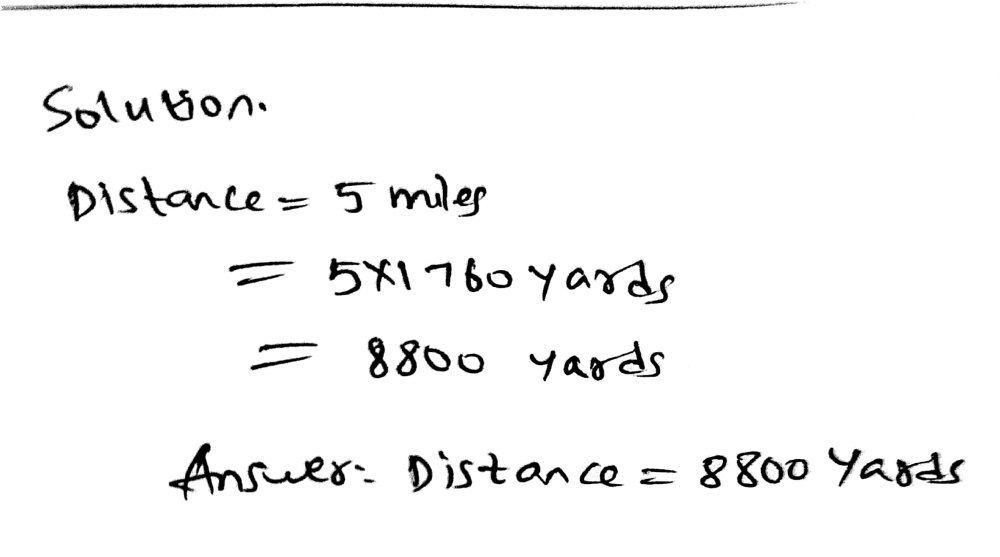 Solution.
Distance = 5 miles
= 5×1760 yards
= 8800 yards
Answer:- Distance = 8800 Yards